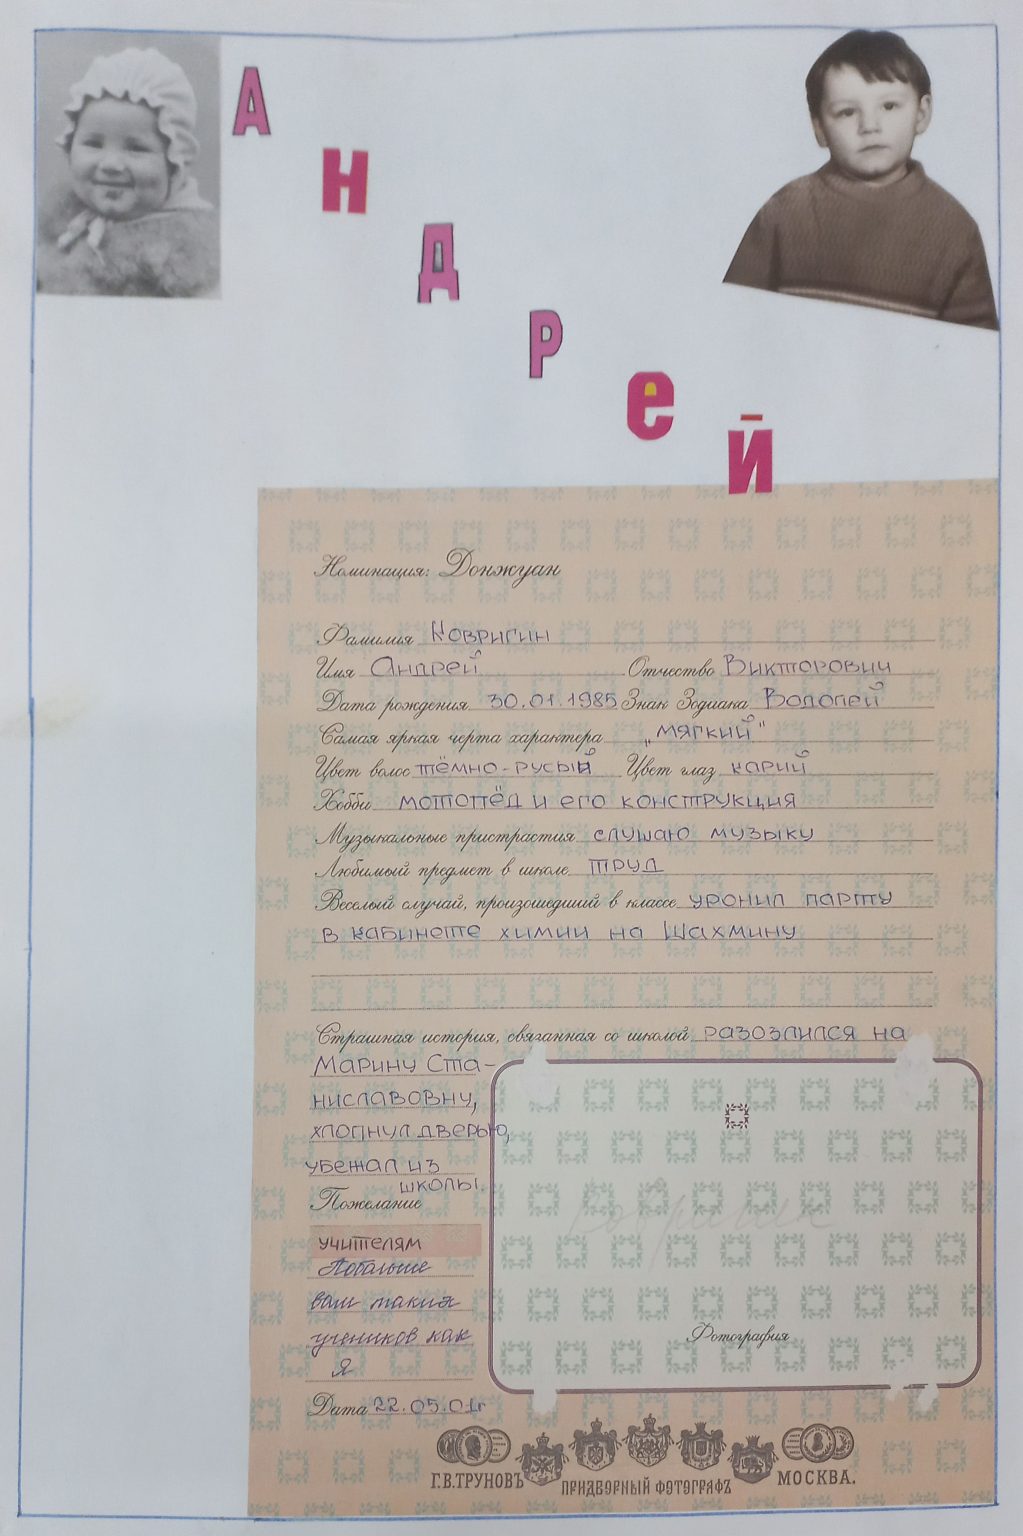 АНДРей
Номинация: Донжуан
Фамилия Ковригин
Имя Андрей Отчество Викторович
Дата рождения 30.01.1985 Знак Зодиака Водолей
Самая яркая черта характера „мягкий"
Цвет волос тёмно-русый Цвет глаз карий
Хобби мотопёд и его конструкция
Музыкальные пристрастия слушаю музыку
Любимый предмет в школе труд
Веселый случай, произошедший в классе уронил парту
в кабинете химии на Шахмину
Страшная история, связанная со школой разозлился на
Марину Ста-
ниславовну,
хлопнул дверью,
убежал из
школы.
Пожелание
учителям
Побольше
вам таких
учеников как
я
Ковригин
Фотография
Дата 22.05.01г
Г.В.ТРУНОВЪ ПРИДВОРНЫЙ ФОТОГРАФЪ МОСКВА.